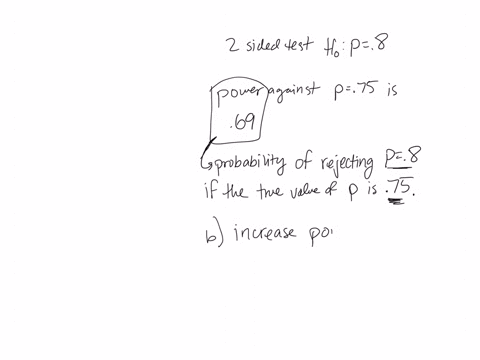 2 sided test H₀: p=.8
power against p=.75 is
.69
↳probability of rejecting p=.8
if the true value of p is .75.
b) increase po